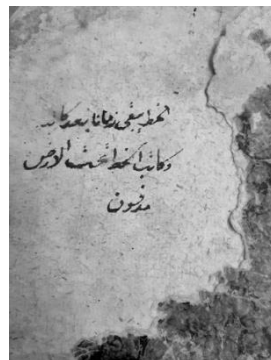 الخط يبقى زمانا بعد كاتبه
وكاتب الخط تحت الارض
مدفون